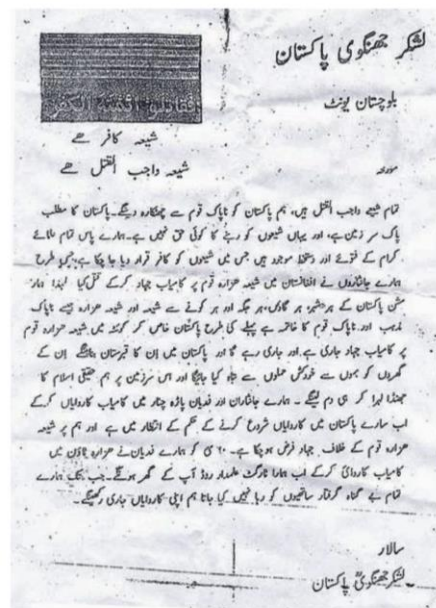 لشکر جھنگوی پاکستان
بلوچستان یونٹ
شیعہ کافر ھے
شیعہ واجب القتل ھے
مورخہ
تمام شیعے واجب القتل ہیں، ہم پاکستان کو ناپاک قوم سے چھٹکارہ دینگے۔ پاکستان کا مطلب
پاک سرزمین ہے، اور یہاں شیعوں کو رہنے کا کوئی حق نہیں ہے۔ ہمارے پاس تمام علمائے
کرام کے فتوے اور دستخط موجود ہیں جس میں شیعوں کو کافر قرار دیا جا چکا ہے، جس طرح
ہمارے جانثاروں نے افغانستان میں شیعہ ھزارہ قوم پر کامیاب جہاد کرکے قتل کیا لہذا ہمارا
مشن پاکستان کے ہر شہر، ہر گاؤں، ہر جگہ اور ہر کونے سے شیعہ اور شیعہ ھزارہ جیسے ناپاک
مذہب اور ناپاک قوم کا خاتمہ ہے پہلے کی طرح پاکستان خاص کر کوئٹہ میں شیعہ ھزارہ قوم
پر کامیاب جہاد جاری ہے اور جاری رہے گا اور پاکستان میں ان کا قبرستان بنائینگے ان کے
گھروں کو بموں سے خودکش حملوں سے تباہ کیا جائیگا اور اس سرزمین پر ہم حقیقی اسلام کا
جھنڈا لہرا کر ہی دم لینگے ۔ ہمارے جانثاران اور فدیان پاڑہ چنار میں کامیاب کاروایاں کرکے
اب سارے پاکستان میں کاروایاں شروع کرنے کے حکم کے انتظار میں ہے اور ہم پر شیعہ
ھزارہ قوم کے خلاف جہاد فرض ہو چکا ہے۔ مئی کو ہمارے فدیان نے ھزارہ ٹاؤن میں
کامیاب کاروائی کرکے اب ہمارا ٹارگٹ علمدار روڈ آپ کے گھر ہونگے۔ جب تک ہمارے
تمام بے گناہ گرفتار ساتھیوں کو رہا نہیں کیا جاتا ہم اپنی کاروایاں جاری رکھینگے۔
سالار
لشکر جھنگوی پاکستان